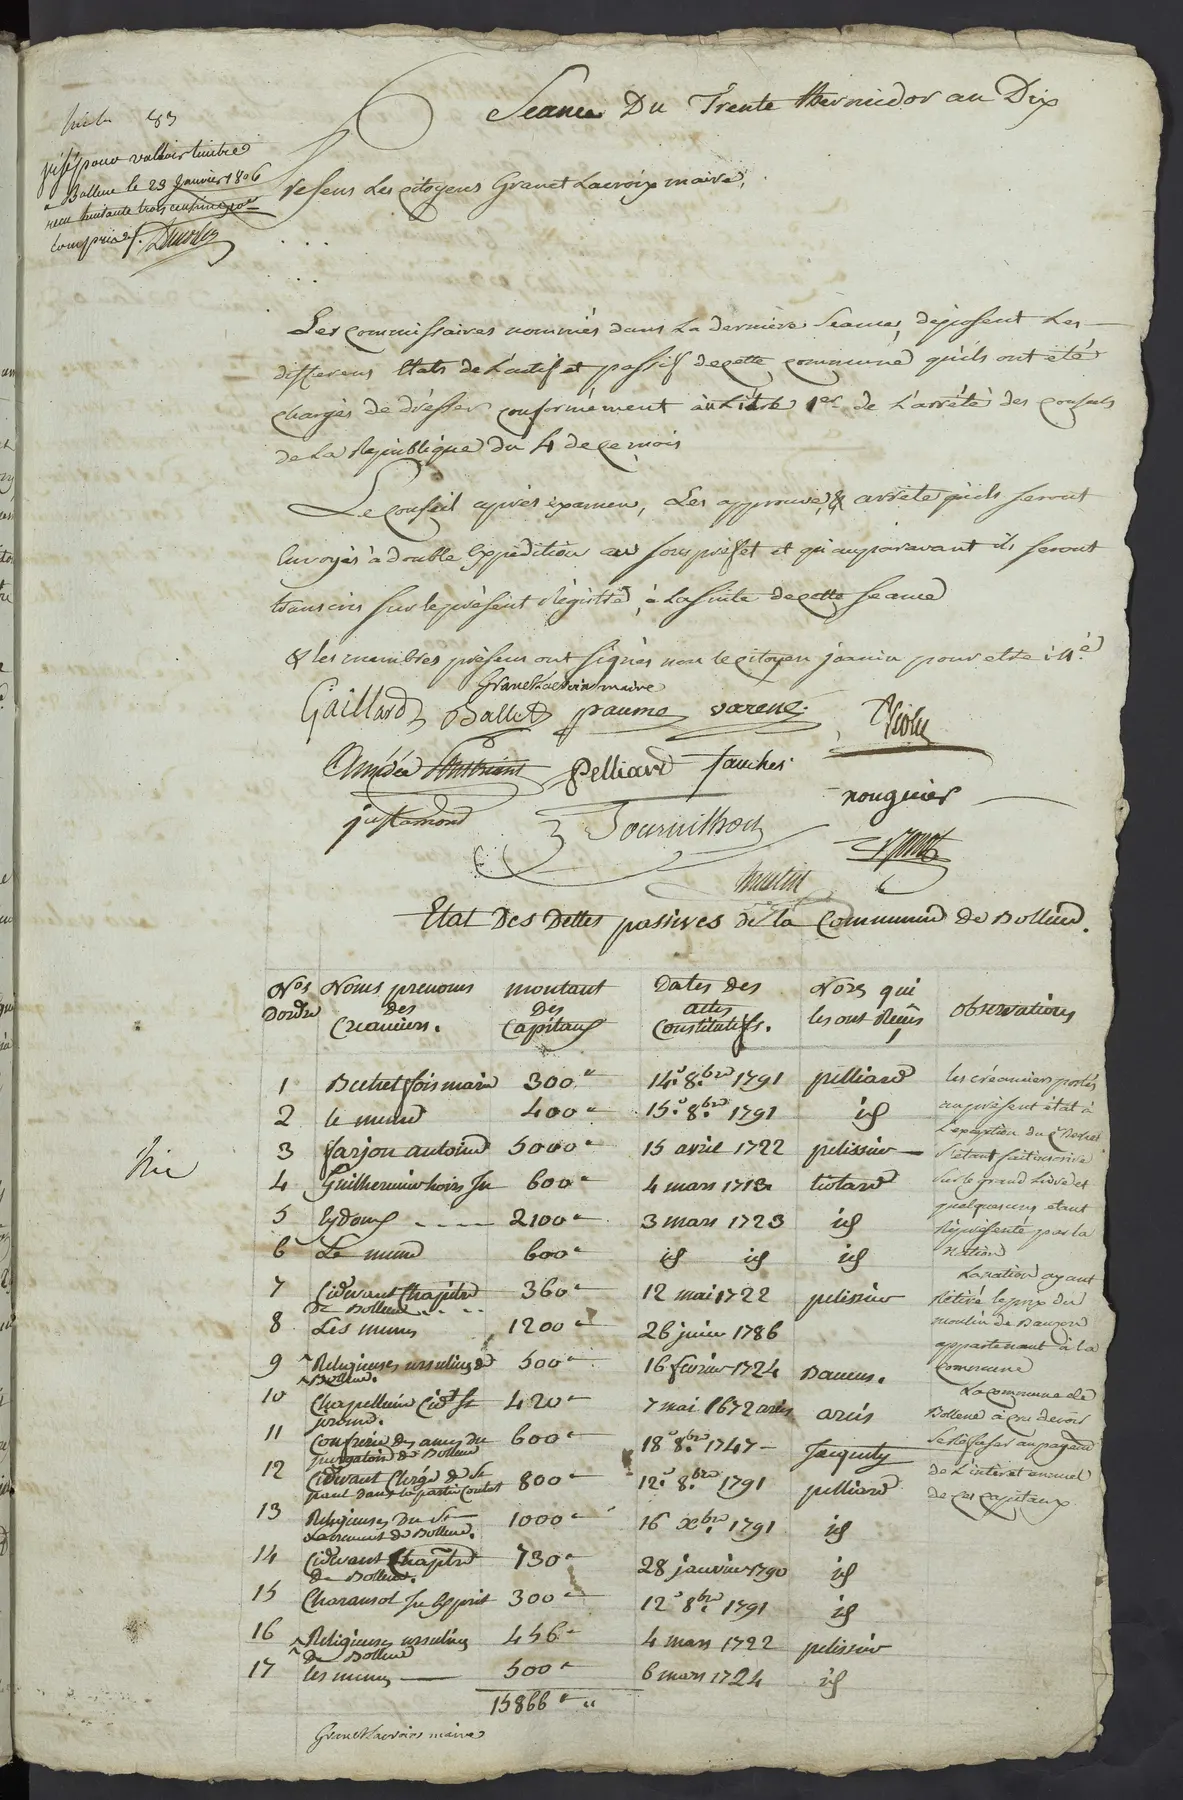 Seance Du Trente thermidor an Dix
83
visé pour valloir timbre
a Bollene le 23 Janvier 1806
recu huitante trois centimes
compris
presens Les citoyens Granet Lacroix maire,
Les commissaires nommés dans La derniere Seance, déposent Les
differens Etats de L'actif et passif de cette commune qu'ils ont été
chargés de dresser conformément au titre 1er de L'arrêté des consuls
de La Republique du 4 de ce mois
Le conseil après examen, Les approuve, & arrête qu'ils seront
Envoyés à double Expédition au sous préfet et qu'auparavant ils seront
transcris sur le présent Régistre, à La suite de cette seance
& les membres présens ont signés non le citoyen joanin pour etre
Granet Lacroix maire
Gaillard Ballet paume varene
Amédée pelliard fauches
nouguier
justamond Tournillon
martin
Etat Des Dettes passives de la Commune de Bollene.
Nos Dordre Noms prenoms des Creanciers. montant Des Capitaux Dates des actes Constitutifs. Nores qui les ont Reçus observations
1 Bechet fois marie 300 14 8bre 1791 pelliard
2 le meme 400 15 8bre 1791 id
3 farjon antoine 5000 15 avril 1722 pelissier
4 Guilhermier hoirs 600 4 mars 1713
5 Eydoux 2100 3 mars 1723 id
6 Le meme 600 id id id
7 Cidevant Chapitre de Bollene 360 12 mai 1722 pelissier
8 Les memes 1200 26 juin 1786
9 Religieuses ursulines de Bollene. 500 16 fevrier 1724
10 Chapellenie Cidt St jerome. 420 7 mai 1672
11 Confrerie des ames du purgatoire de Bollene 600 18 8bre 1747
12 Cidevant Clergé de St paul 800 12 8bre 1791 pelliard
13 Religieuses Du St Sacrement de Bollene. 1000 16 xbre 1791 id
14 Cidevant Chapitre de Bollene. 730 28 janvier 1790 id
15 Charansol 300 12 8bre 1791 id
16 Religieuses ursulines de Bollene 456 4 mars 1722 pelissier
17 les memes 500 6 mars 1724 id
15866
les créanciers portés
au présent état à
L'exception du Cn Bechet
s'étant fait inscrire
sur le grand Livre et
quelques uns etant
Réprésenté par la
Nation
La nation ayant
Rétiré le prix du
moulin de
appartenant à la
commune
La commune de
Bollene à cru devoir
se refuser au payement
de L'intéret annuel
de ces capitaux
Granet Lacroix maire